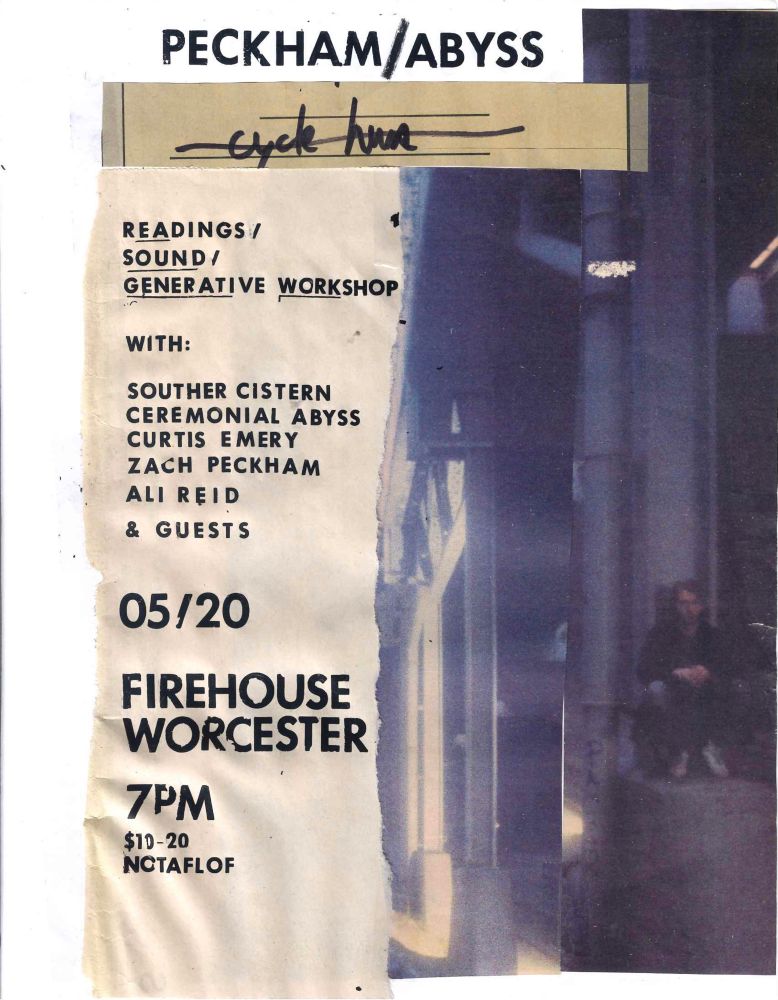 PECKHAM/ABYSS
cycle
READINGS/
SOUND/
GENERATIVE WORKSHOP
WITH:
SOUTHER CISTERN
CEREMONIAL ABYSS
CURTIS EMERY
ZACH PECKHAM
ALI REID
& GUESTS
05/20
FIREHOUSE
WORCESTER
7PM
$10-20
NOTAFLOF